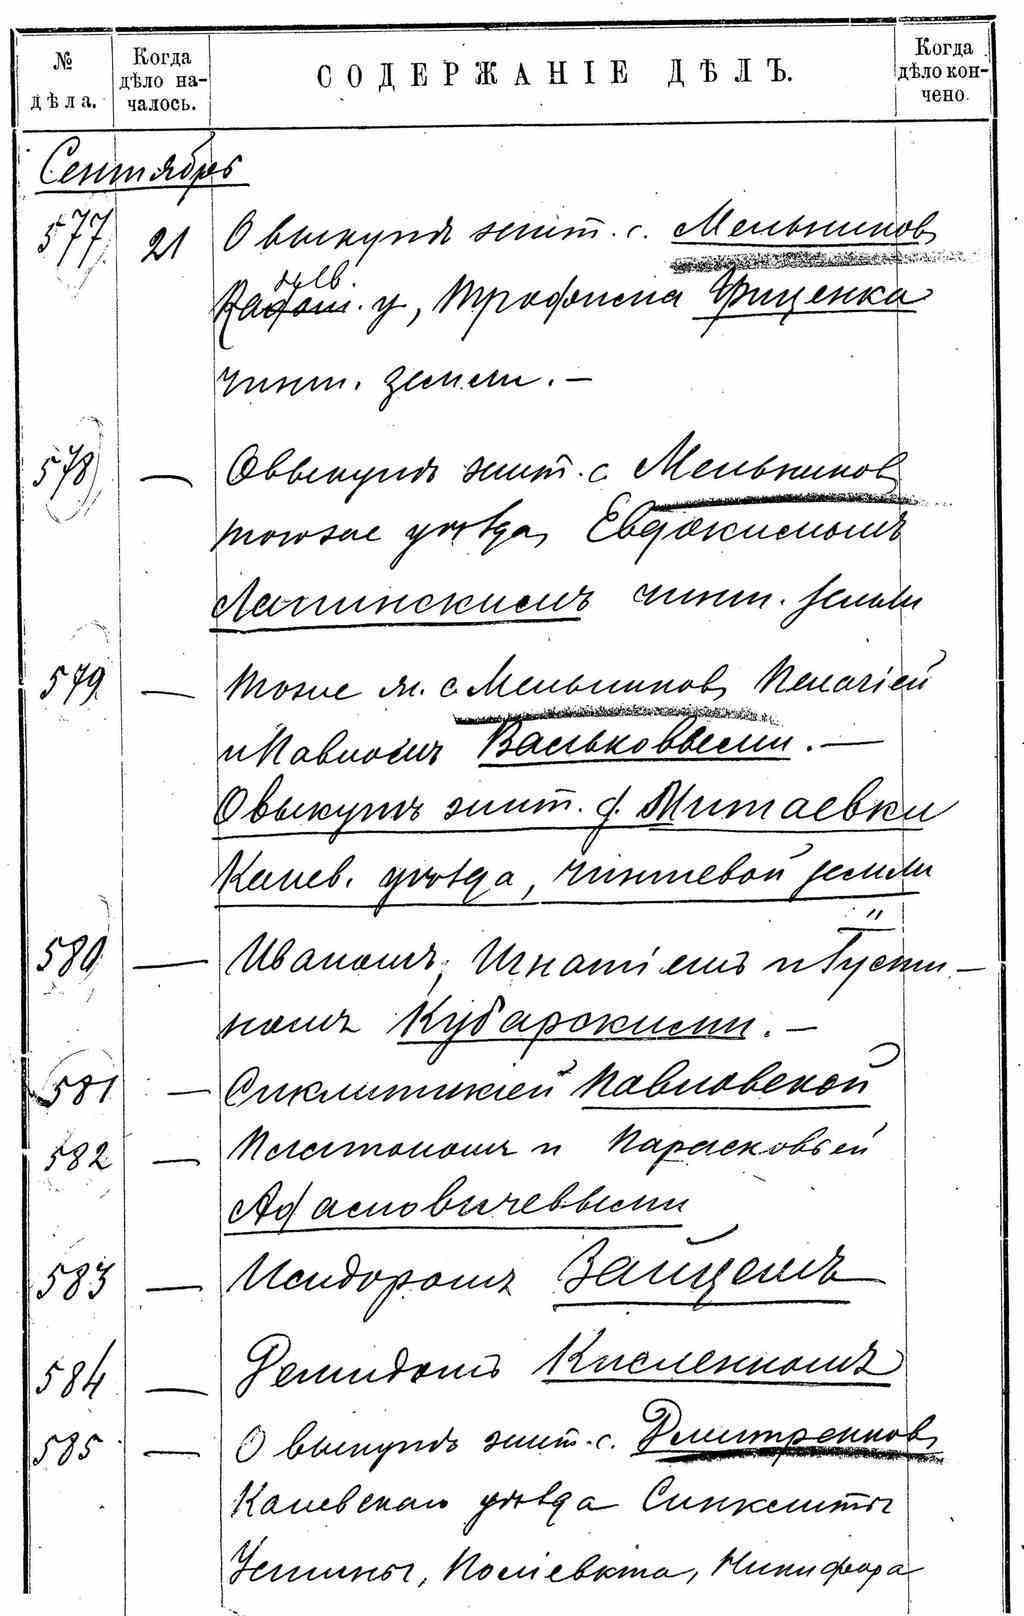 № дѣла.
Когда дѣло началось.
СОДЕРЖАНІЕ ДѢЛЪ.
Когда дѣло кончено.
Сентябрь
577 21 О выкупѣ жит. с. Мельников
у, Трофима Фиценка
чинш. земли. —
578 — О выкупѣ жит. с Мельников
тогоже уѣзда, Евдокимомъ
Лапинскимъ чинш. земли
579 — Тоже с. Мельников, Пелагіей
и Павломъ Васьковыми. —
О выкупѣ жит. д. Митаевки
Канев. уѣзда, чиншевой земли
580 — Иваномъ, Игнатіемъ и Густи-
номъ Кубарскими. —
581 — Синклитикіей Павловской
582 — Платономъ и Парасковьей
Афасновичевыми
583 — Исидоромъ Зайцемъ
584 — Демидомъ Кисленкомъ
585 — О выкупѣ жит. с. Дмитренков,
Каневскаго уѣзда Синклиты
Устины, Поліевкта, Никифора